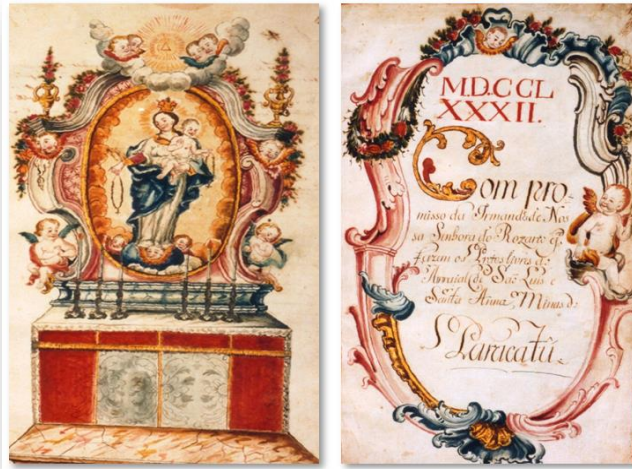 M.D.CCL
XXXII.
Compro-
misso da Irmandade de Nos
sa Senhora do Rozario q̃
fizeram os Pretos livres do
Arraial de São Luis e
Santa Anna, Minas de
Paracatú.